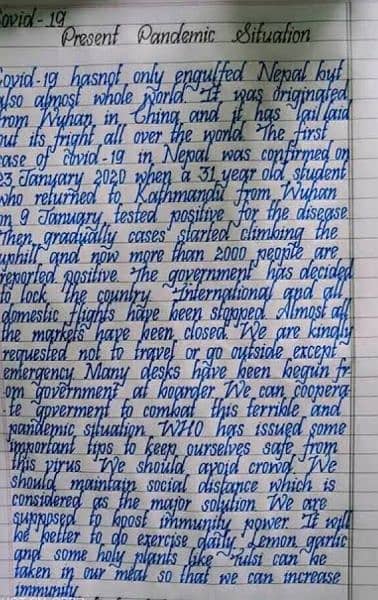 Covid-19
Present Pandemic Situation
Covid-19 hasnot only engulfed Nepal but
also almost whole world. It was originated
from Wuhan in China and it has laid
out its fright all over the world. The first
case of covid-19 in Nepal was confirmed on
23 January 2020 when a 31 year old student
who returned to Kathmandu from Wuhan
on 9 January, tested positive for the disease.
Then gradually cases started climbing the
uphill and now more than 2000 people are
reported positive. The government has decided
to lock the country. International and all
domestic flights have been stopped. Almost all
the markets have been closed. We are kindly
requested not to travel or go outside except
emergency. Many desks have been begun fr
om government at boarder. We can coopera-
te goverment to combat this terrible and
pandemic situation. WHO has issued some
important tips to keep ourselves safe from
this virus. We should avoid crowd. We
should maintain social distance which is
considered as the major solution. We are
supposed to boost immunity power. It will
be better to do exercise daily. Lemon garlic
and some holy plants like Tulsi can be
taken in our meal so that we can increase
immunity